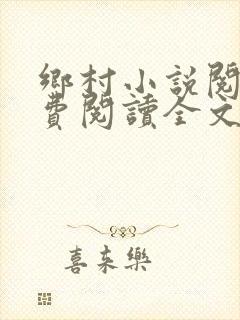 鄉村小説閱
費閱讀全文
喜來樂